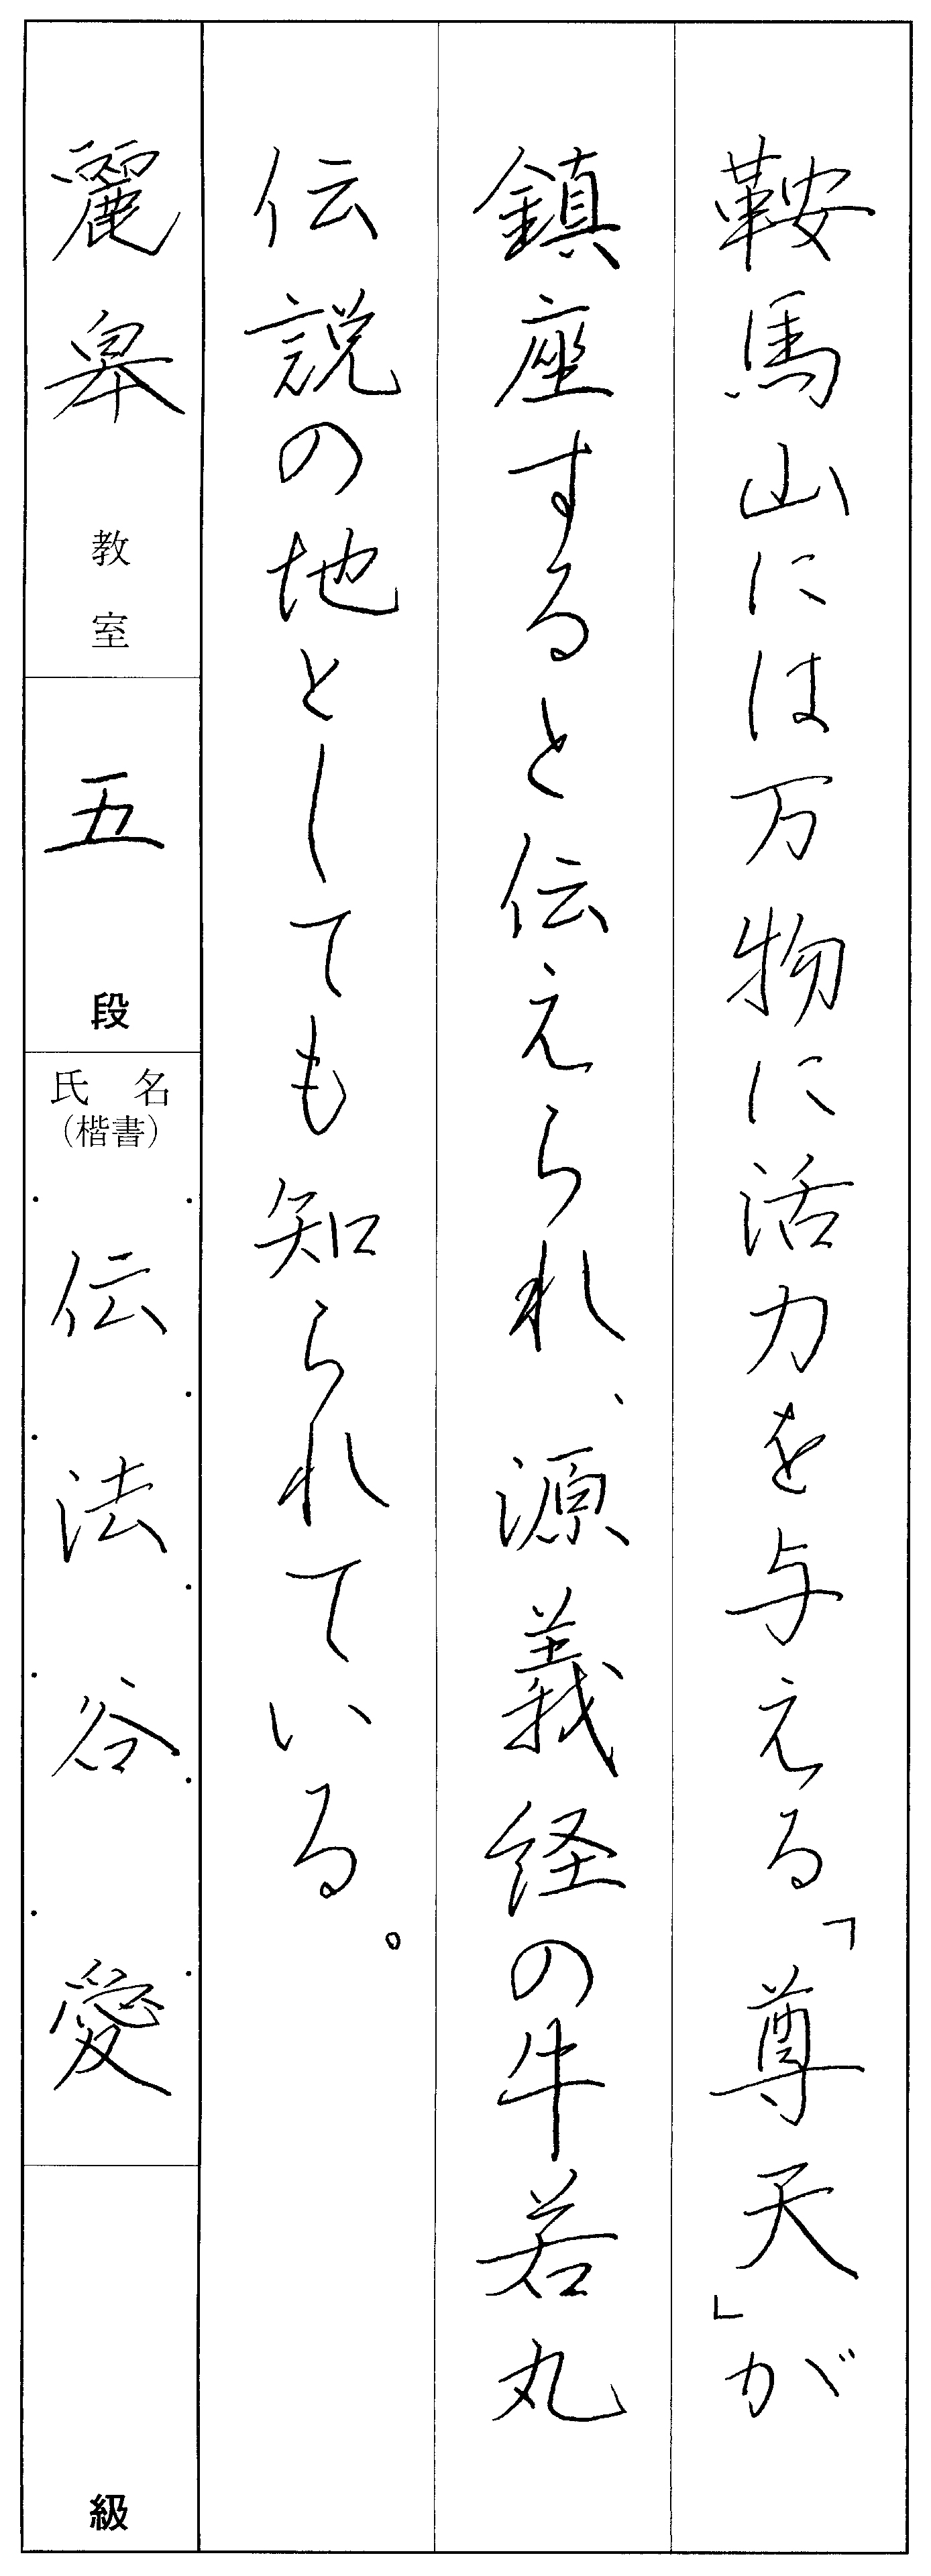 鞍馬山には万物に活力を与える「尊天」が
鎮座すると伝えられ、源義経の牛若丸
伝説の地としても知られている。
麗皐教室
五段
氏名
（楷書）
伝法谷愛
級